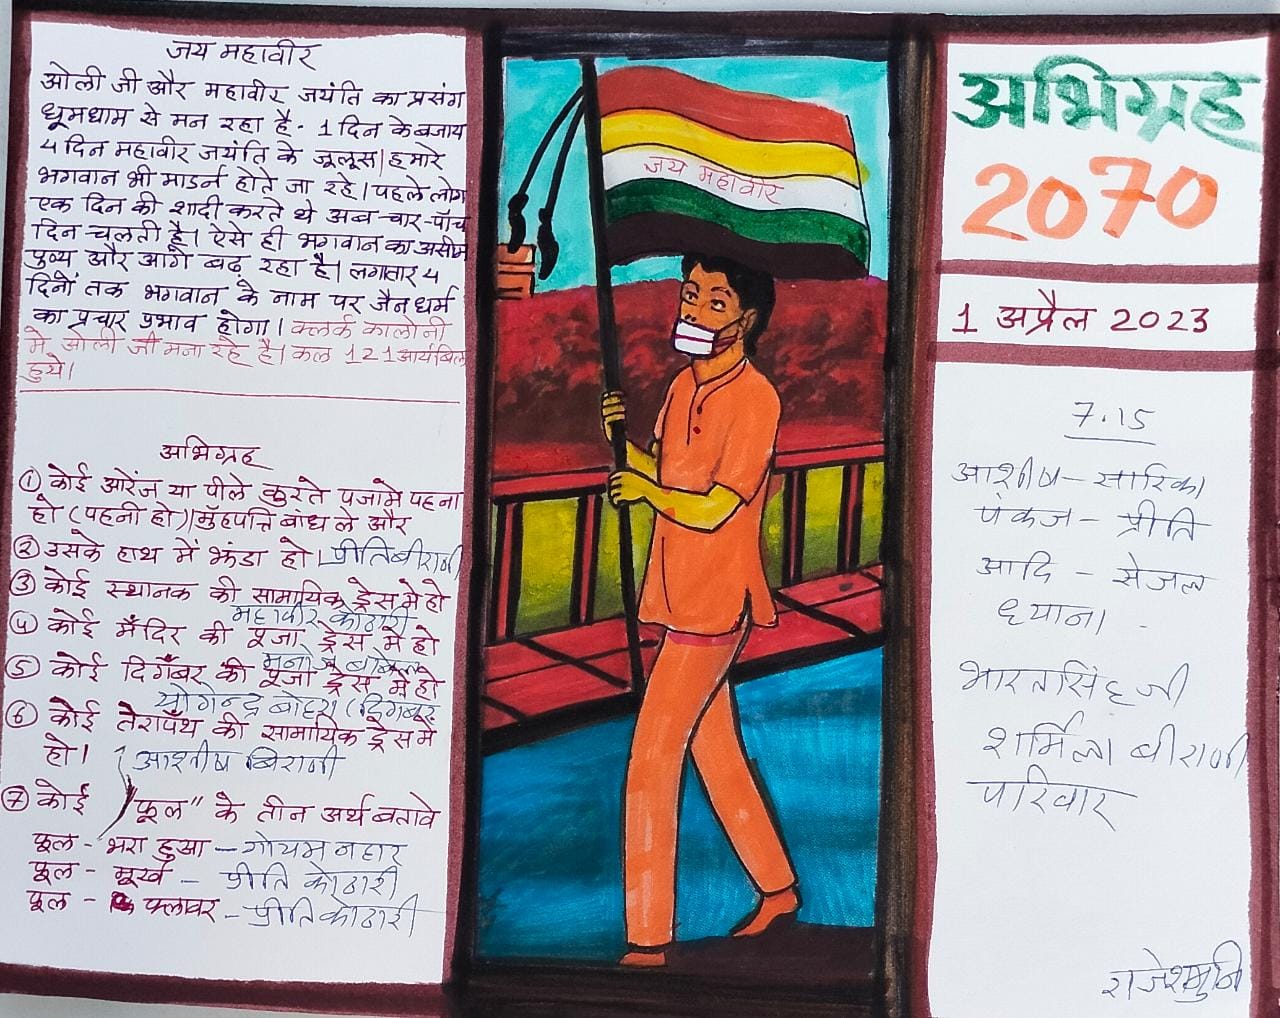 जय महावीर
ओली जी और महावीर जयंति का प्रसंग
धूमधाम से मन रहा है. 1 दिन के बजाय
4 दिन महावीर जयंति के जूलूस। हमारे
भगवान भी माडर्न होते जा रहे। पहले लोग
एक दिन की शादी करते थे अब चार-पाँच
दिन चलती है। ऐसे ही भगवान का असीम
पुण्य और आगे बढ़ रहा है। लगातार 4
दिनों तक भगवान के नाम पर जैन धर्म
का प्रचार प्रभाव होगा। क्लर्क कालोनी
में ओली जी मना रहे है। कल 121 आयंबिल
हुये।
अभिग्रह
① कोई ओरेंज या पीले कुरते पजामे पहना
हो (पहनी हो)। मुँहपत्ति बांध ले और
② उसके हाथ में झंडा हो। प्रीति बीराणी
③ कोई स्थानक की सामायिक ड्रेस मे हो
महावीर कोठारी
④ कोई मँदिर की पूजा ड्रेस में हो
मनोज बाफना
⑤ कोई दिगँबर की पूजा ड्रेस में हो
योगेन्द्र बोहरा (दिगंबर
⑥ कोई तेरापँथ की सामायिक ड्रेस में
हो। आशीष बिराणी
⑦ कोई "फूल" के तीन अर्थ बतावे
फूल - भरा हुआ - गोयम नहार
फूल - मूर्ख - प्रीति कोठारी
फूल - फ्लावर - प्रीति कोठारी
जय महावीर
अभिग्रह
2070
1 अप्रैल 2023
7.15
आशीष - सारिका
पंकज - प्रीति
आदि - सेजल
ध्याना
भारतसिंह जी
शर्मिला बीराणी
परिवार
राजेशमुनि